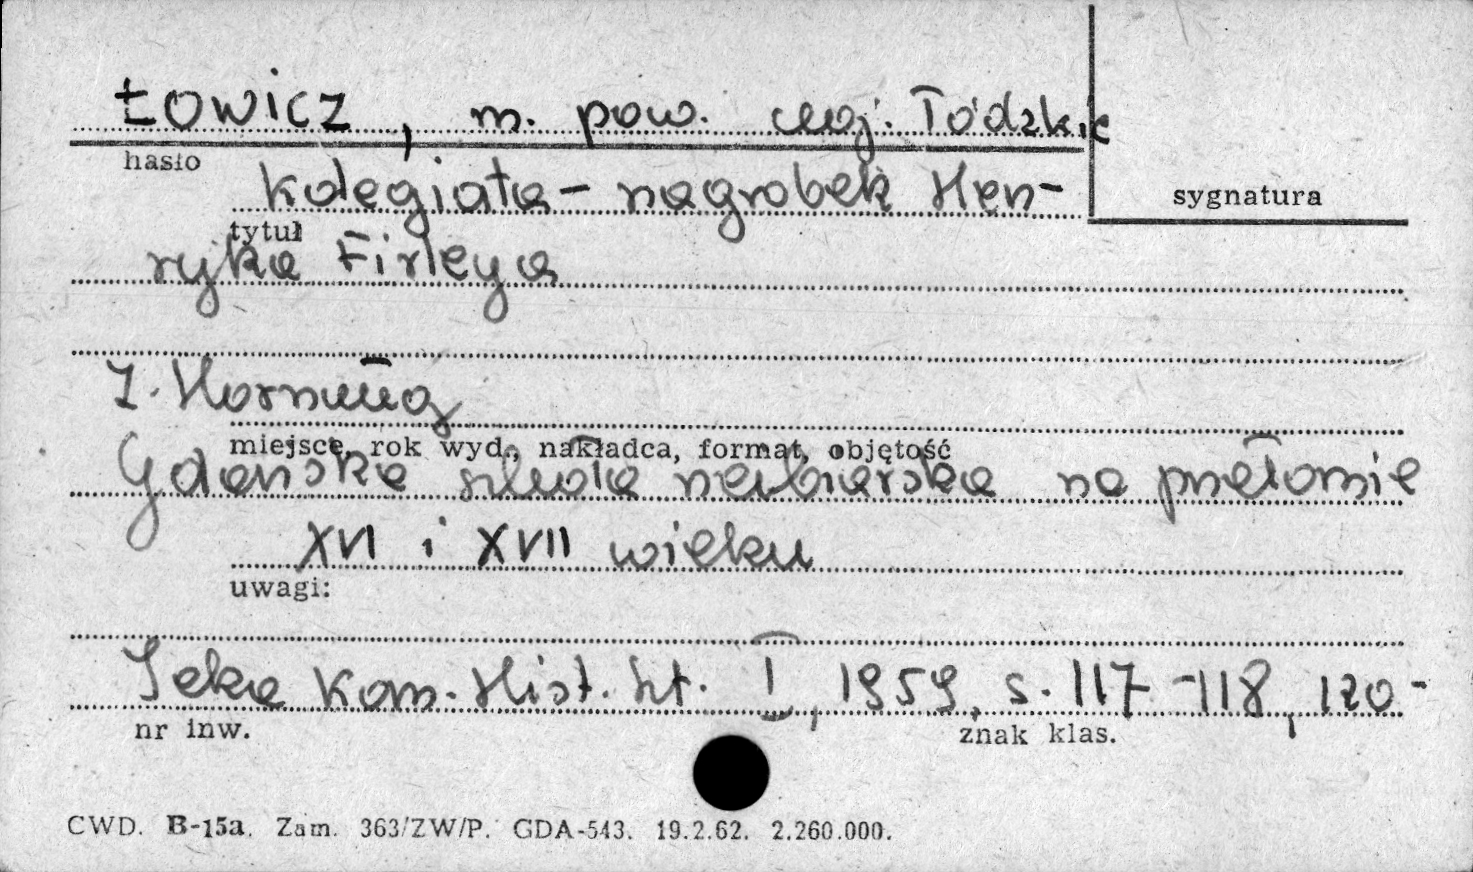 ŁOWICZ, m. pow. woj. Łódzkie
hasło
sygnatura
Kolegiata – nagrobek Hen-
tytuł
ryka Firleya
Z. Hornung
miejsce, rok wyd., nakładca, format, objętość
Gdańska szkoła rzeźbiarska na przełomie
XVI i XVII wieku
uwagi:
Teka Kom. Hist. Szt. I, 1959, s. 117-118, 120-
nr inw.
znak klas.
CWD. B-15a. Zam. 363/ZW/P. GDA-543. 19.2.62. 2.260.000.